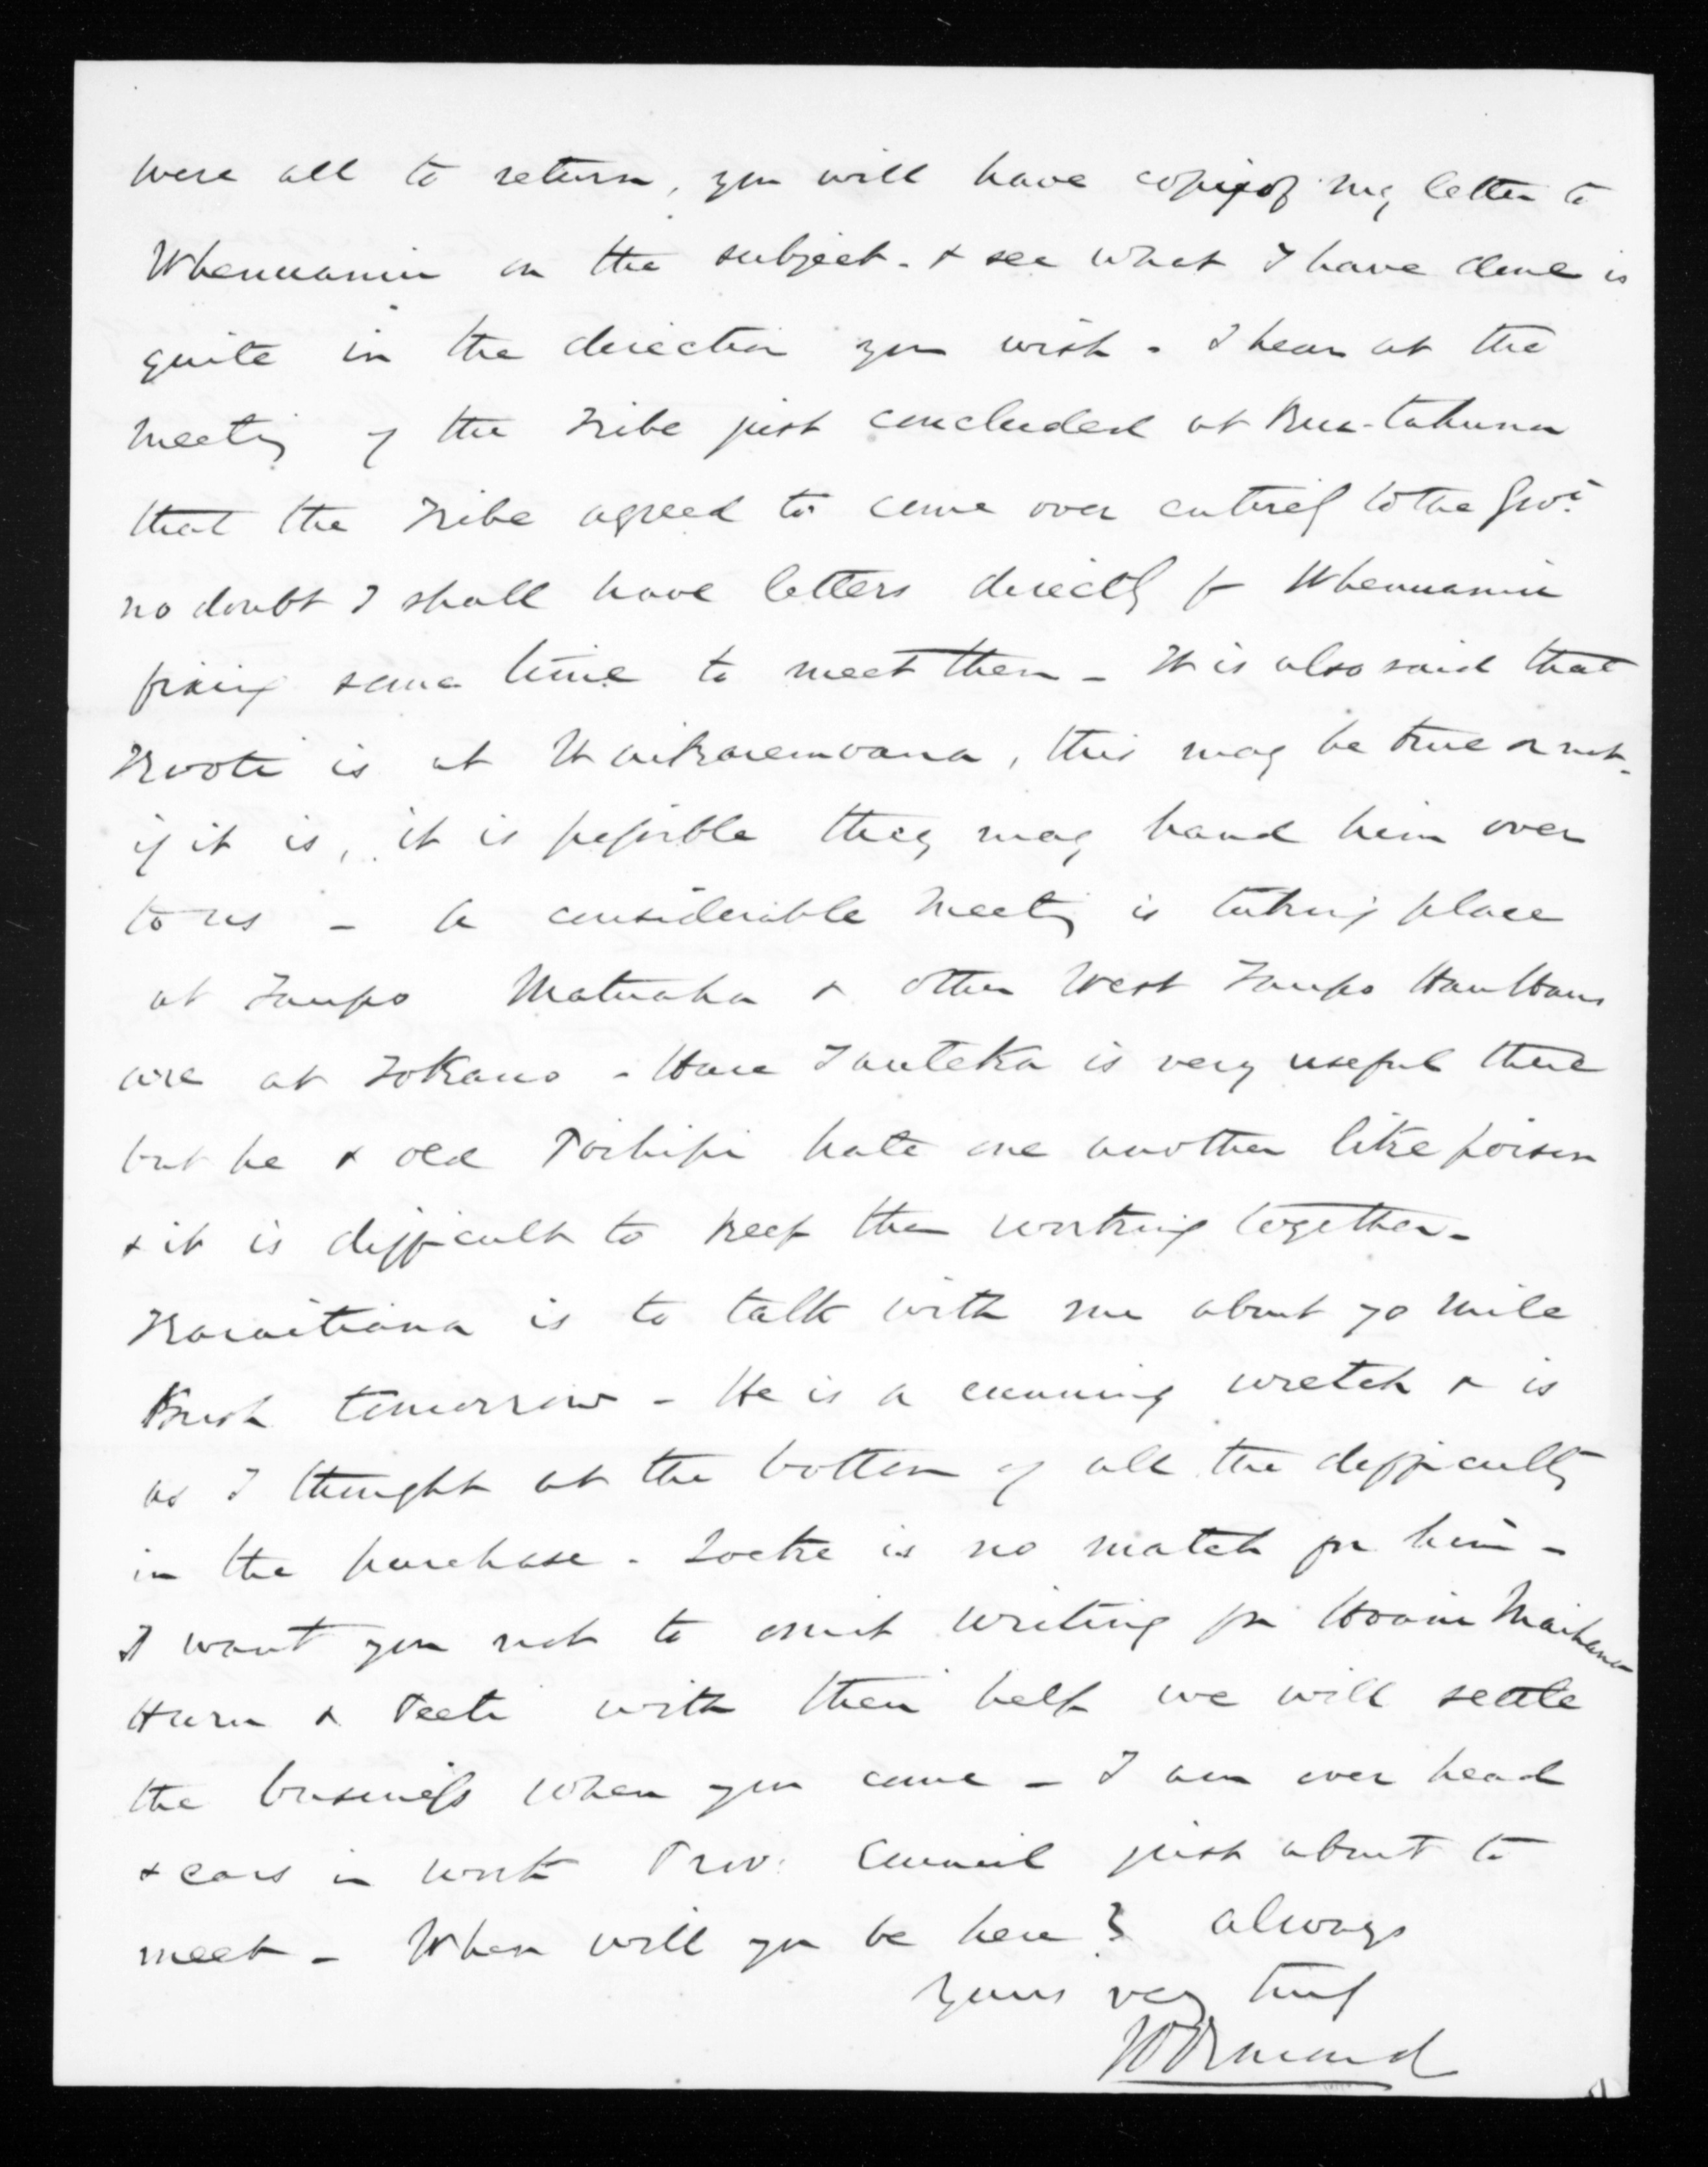 were all to return, you will have copies of my letter to
Whenuanui on the subject. & see what I have done is
quite in the direction you wish. I hear at the
meeting of the Tribe just concluded at Rua-tahuna
that the Tribe agreed to come over entirely to the Govt.
no doubt I shall have letters directly fr Whenuanui
fixing some time to meet them - It is also said that
Kooti is at Waikaremoana, this may be true or not.
if it is, it is possible they may hand him over
to us - A considerable meeting is taking place
at Taupo Matuaha & other West Taupo Hau Haus
are at Tokano - Hare Tauteka is very useful there
but he & old Poihipi hate one another like poison
& it is difficult to keep them working together -
Karaitiana is to talk with me about 70 mile
Bush tomorrow - He is a cunning wretch & is
as I thought at the bottom of all the difficulty
in the purchase. Locke is no match for him -
I want you not to omit writing for Hoani Maihana
Huru & Peeti with their help we will settle
the business when you come - I am over head
& ears in work Prov: Council just about to
meet - When will you be here? always
Yours very truly
JD Ormond